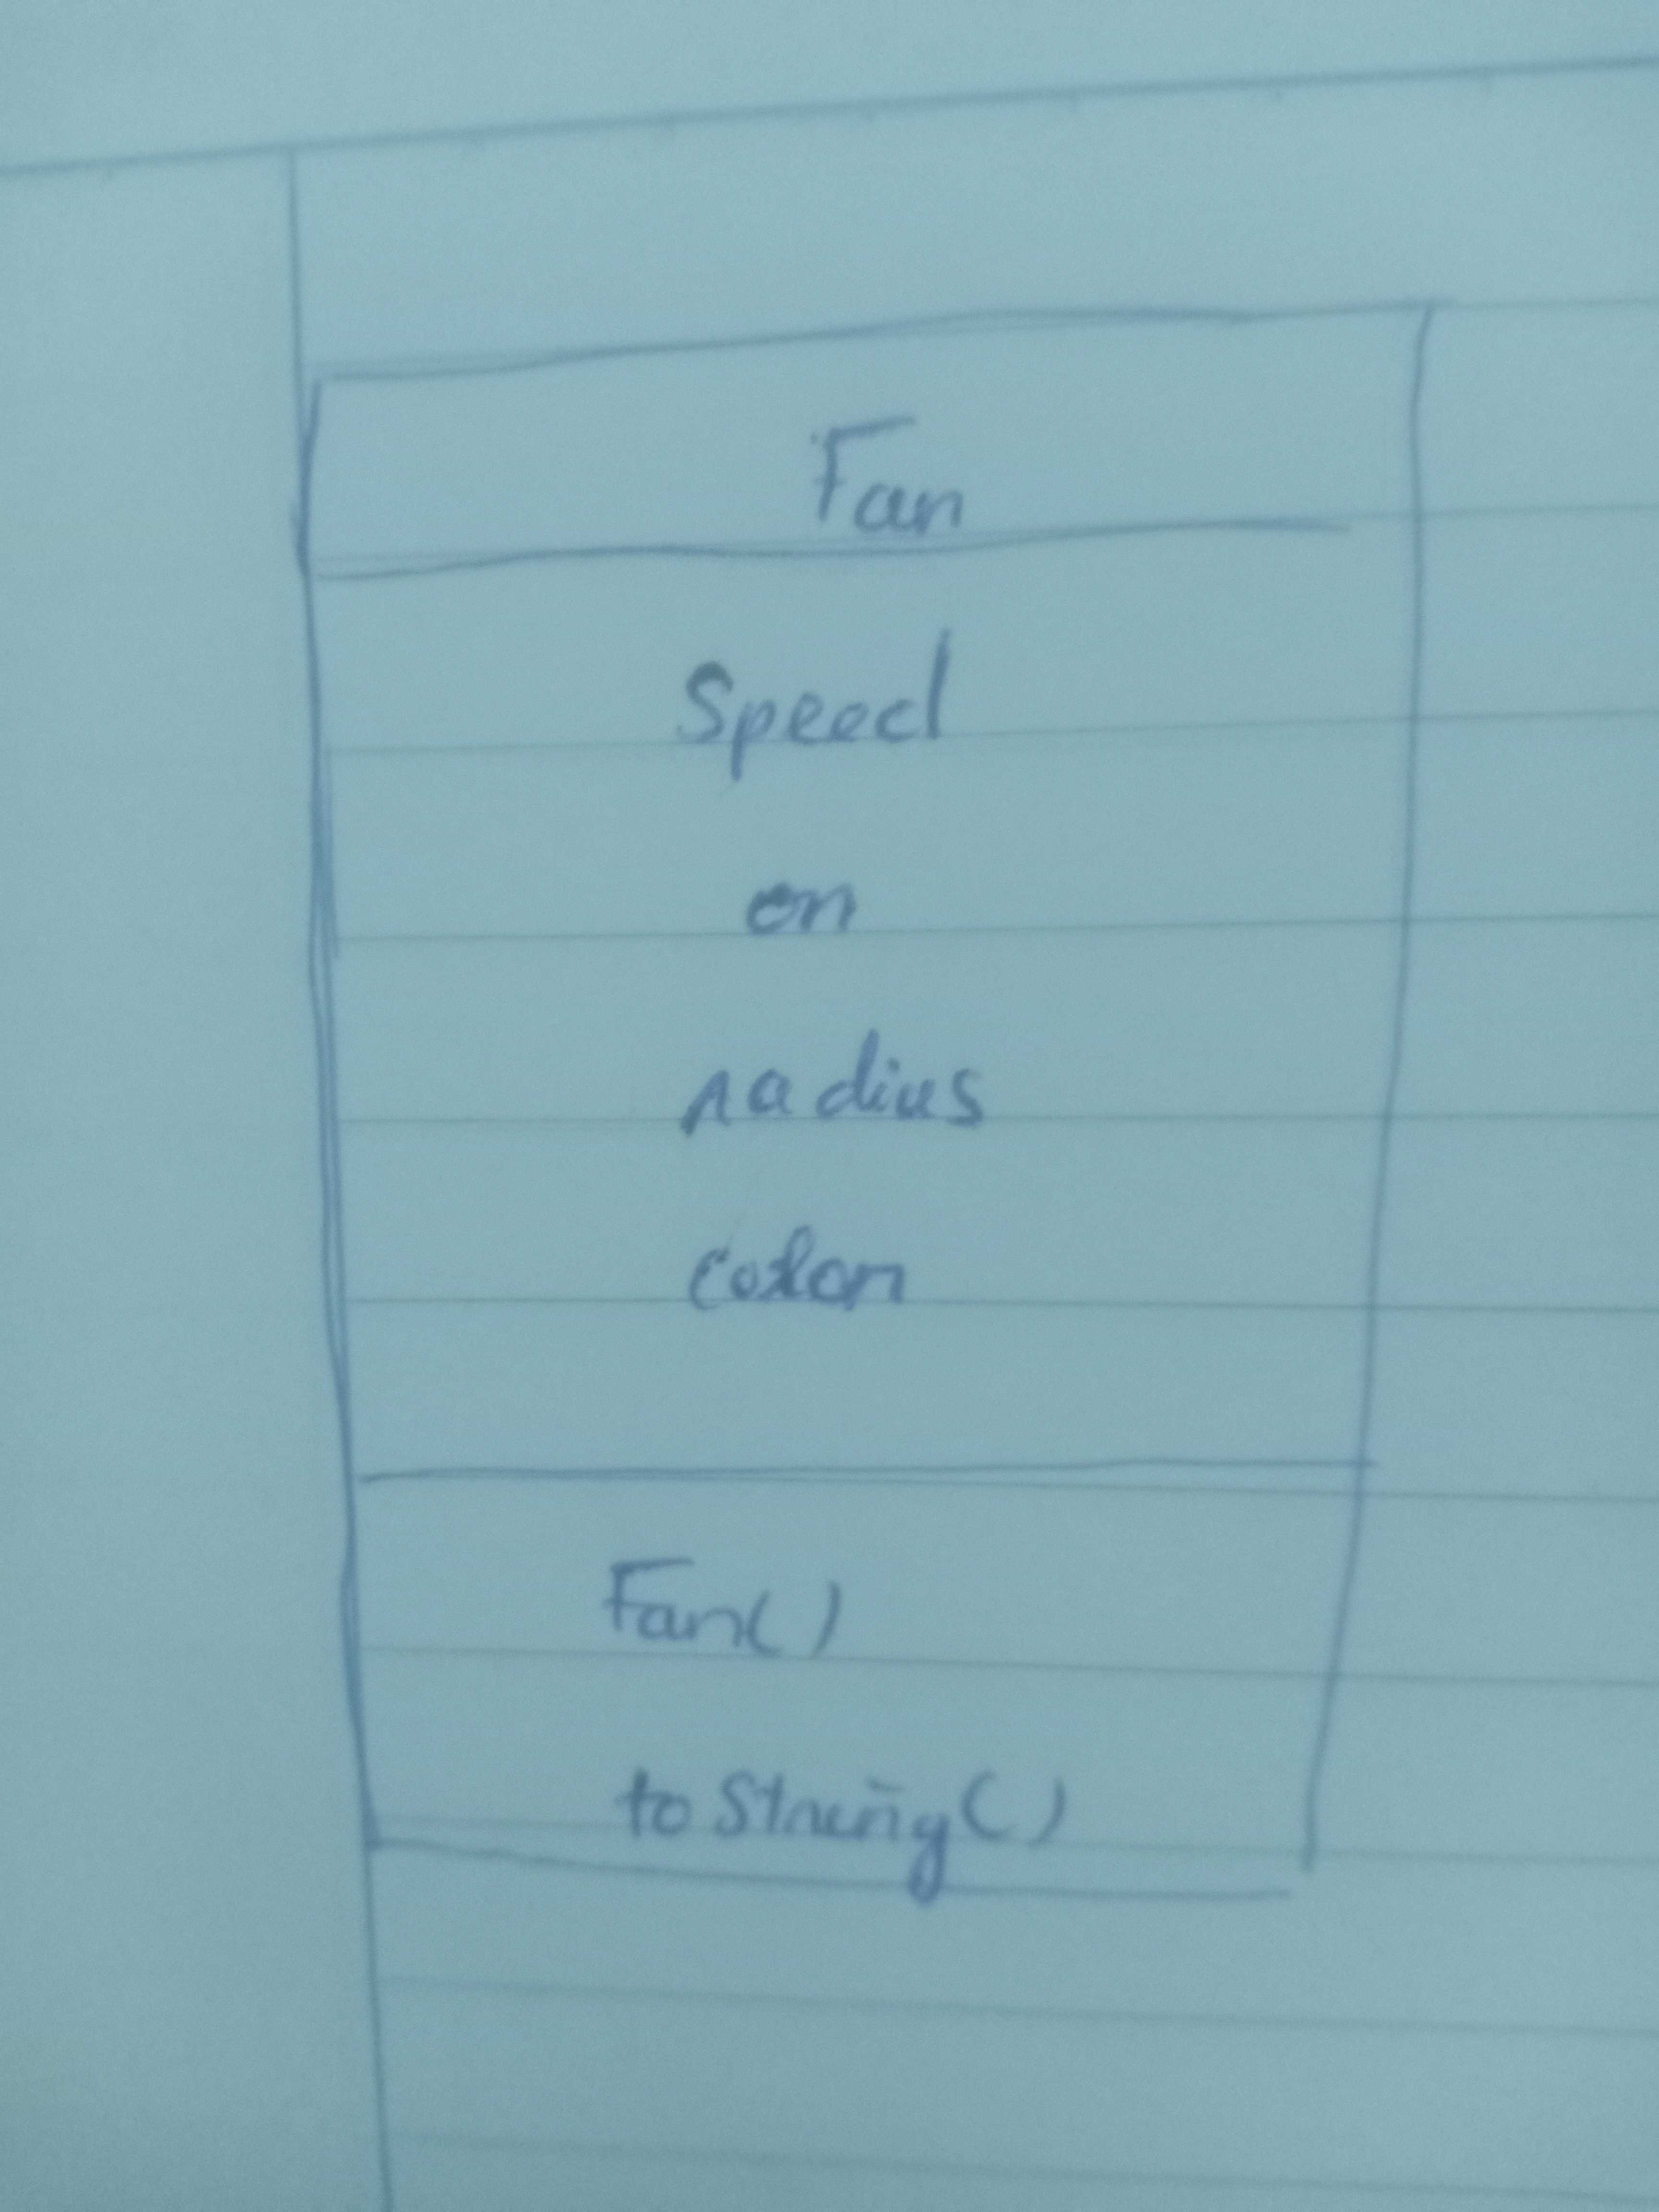 Fan
Speed
on
radius
color
Fan()
toString()